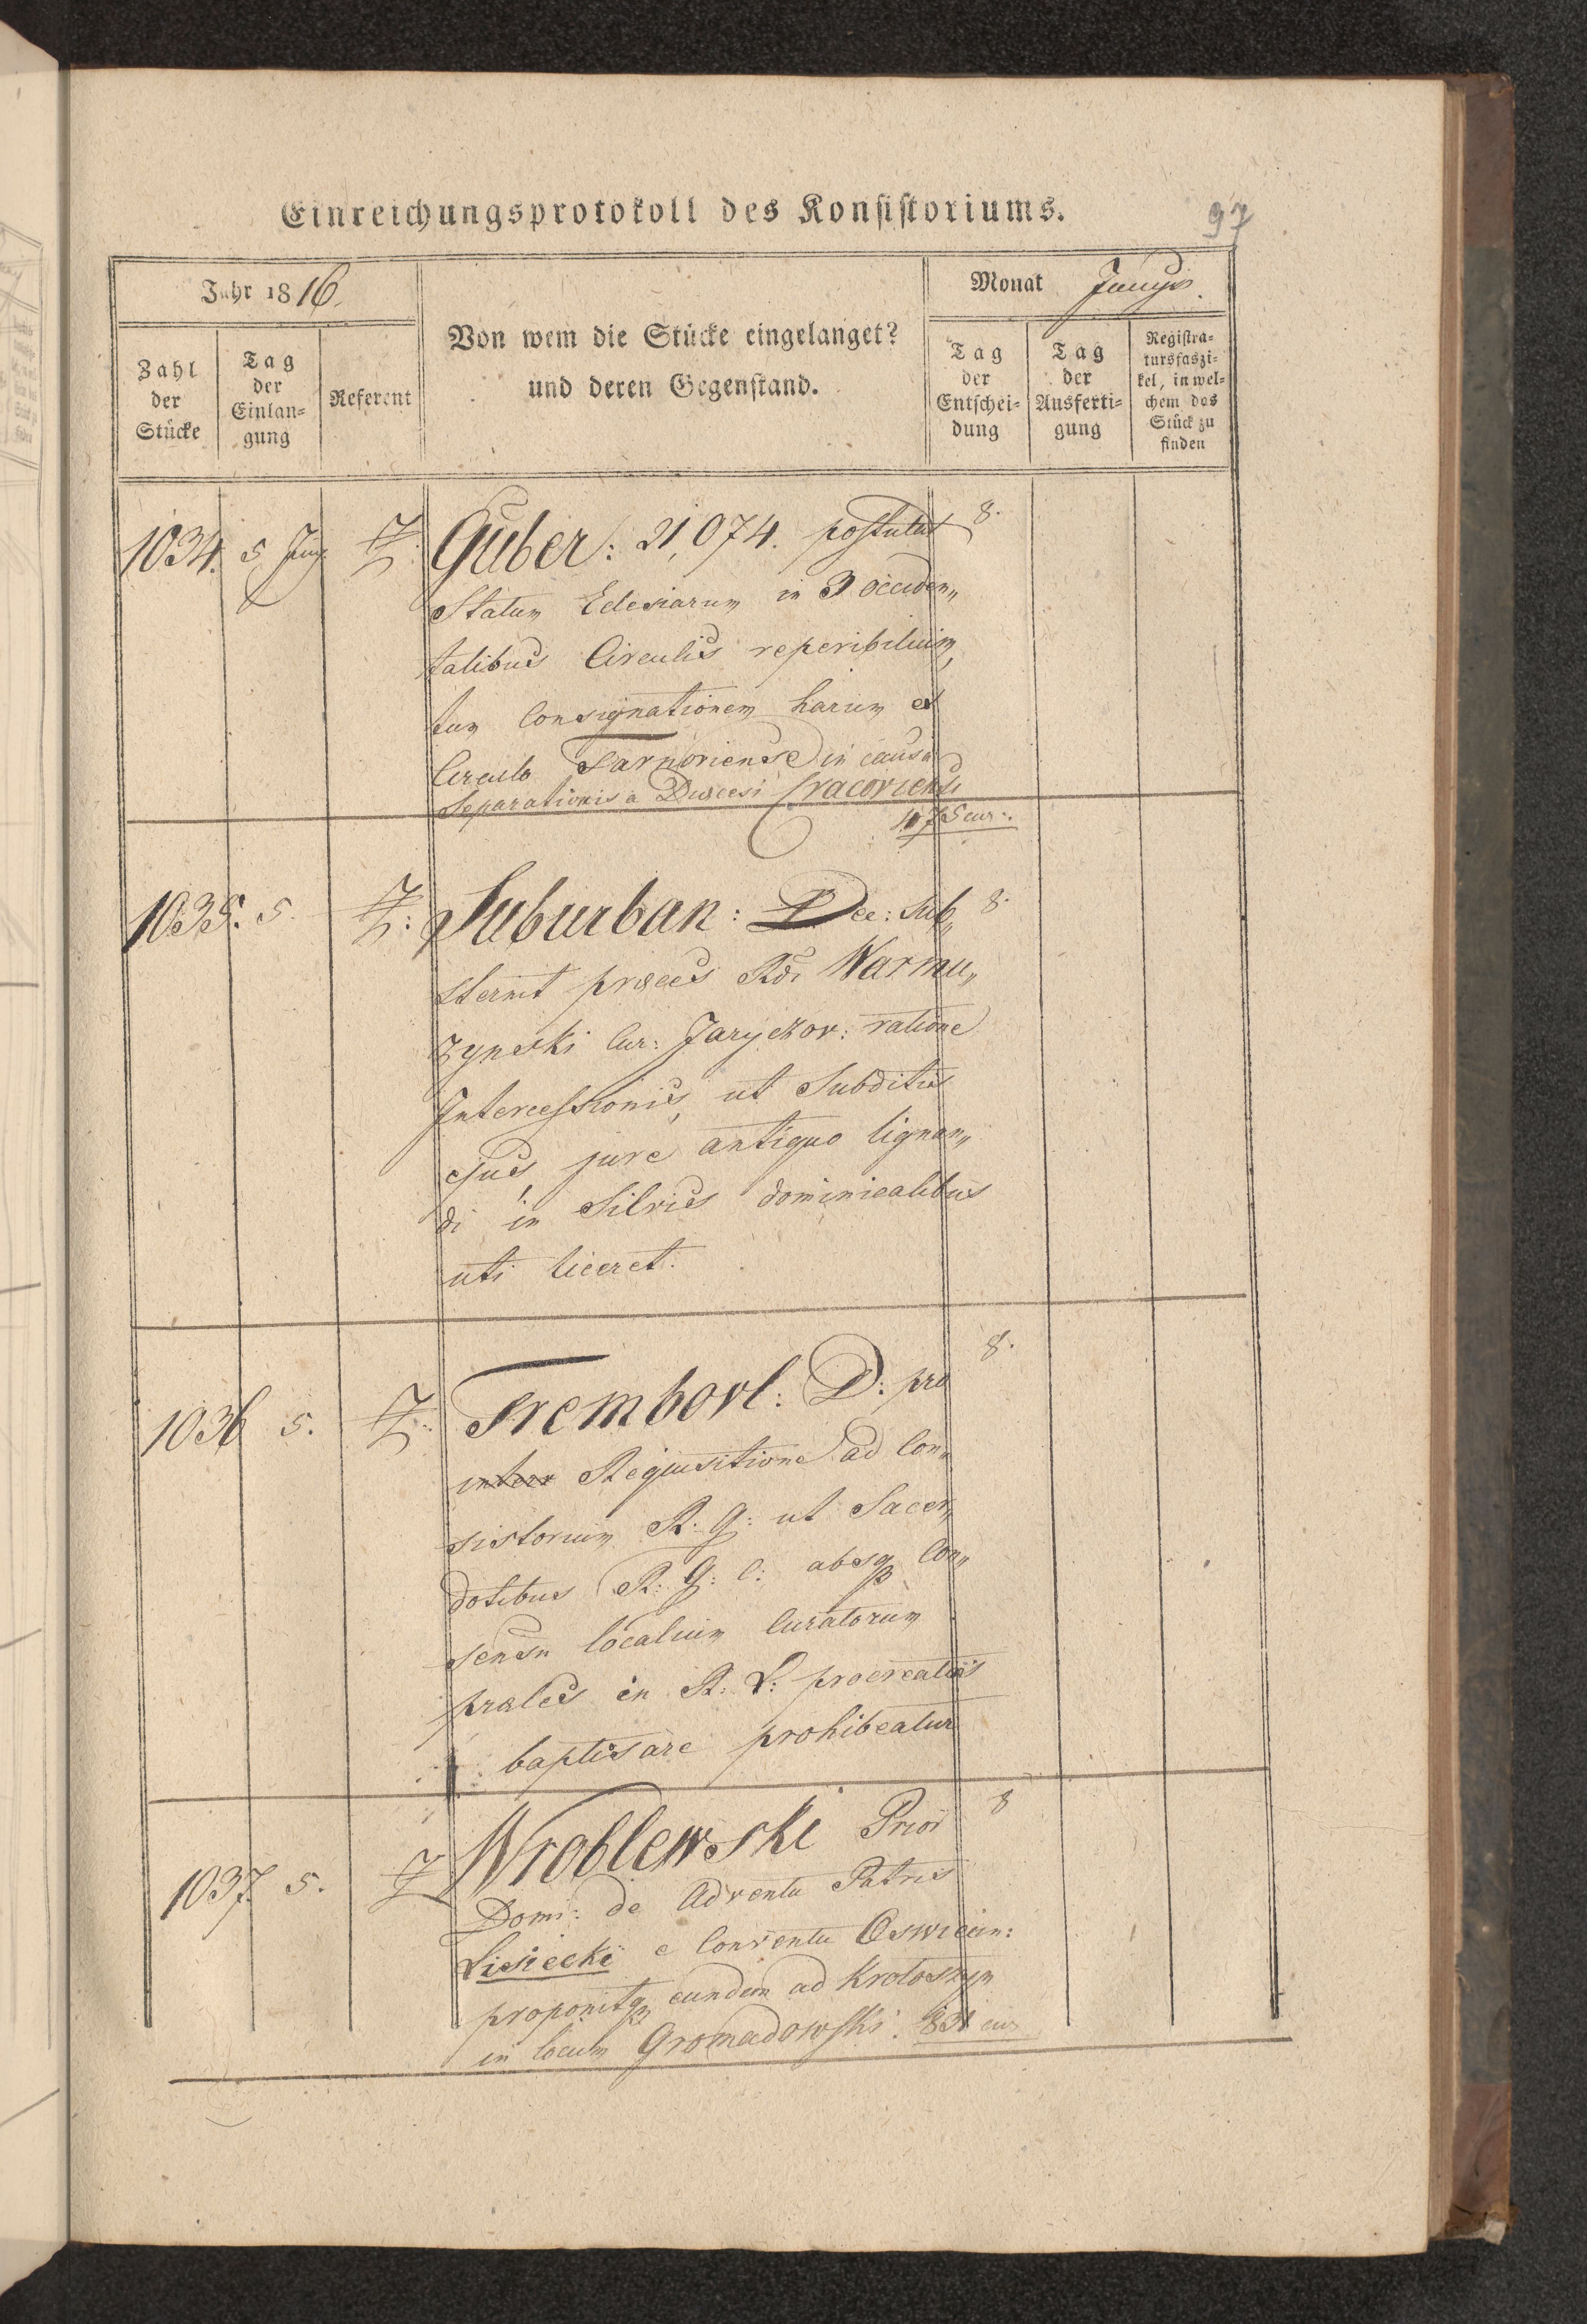 Einreichungsprotokoll des Konsistoriums.
97
Jahr 1816.
Von wem die Stücke eingelanget?
und deren Gegenstand.
Monat Junys.
Zahl
der
Stücke
Tag
der
Einlan=
gung
Referent
Tag
der
Entschei=
dung
Tag
der
Ausferti=
gung
Registra=
tursfaszi=
kel, in wel=
chem das
Stück zu
finden
1034. 5 Juny Z: Guber: 21,074. postulat 8.
Statum Eclesiarum in 3 occiden„
talibus Circulis reperibilium,
tum Consignationem harum ex
Circulo Tarnoviense in causa
Separationis a Dioecesi Cracoviensi
1075 cur:.
1035. 5. Z: Suburban: Dec: sub„ 8.
sternit preces Rdi Warmu„
zynski Cur: Jaryczov: ratione
Intercessionis, ut Subditis
ejus, jure antiquo lignan„
di in Silvis dominicalibus
uti liceret.
1036 5. Z: Trembovl: D: pro 8.
inter Requisitione ad Con„
sistorium R. G: ut Sacer„
dotibus R: G: C: absq Con„
sensu localium Curatorum
proles in R: L: procreatas
baptisare prohibeatur
1037 5. Z Wroblewski Prior 8
Domi: de Adventu Patris
Lisiecki e Conventu Oswiecim:
proponitq eundem ad Krotoszyn
in locum Gromadowski. 831 cur